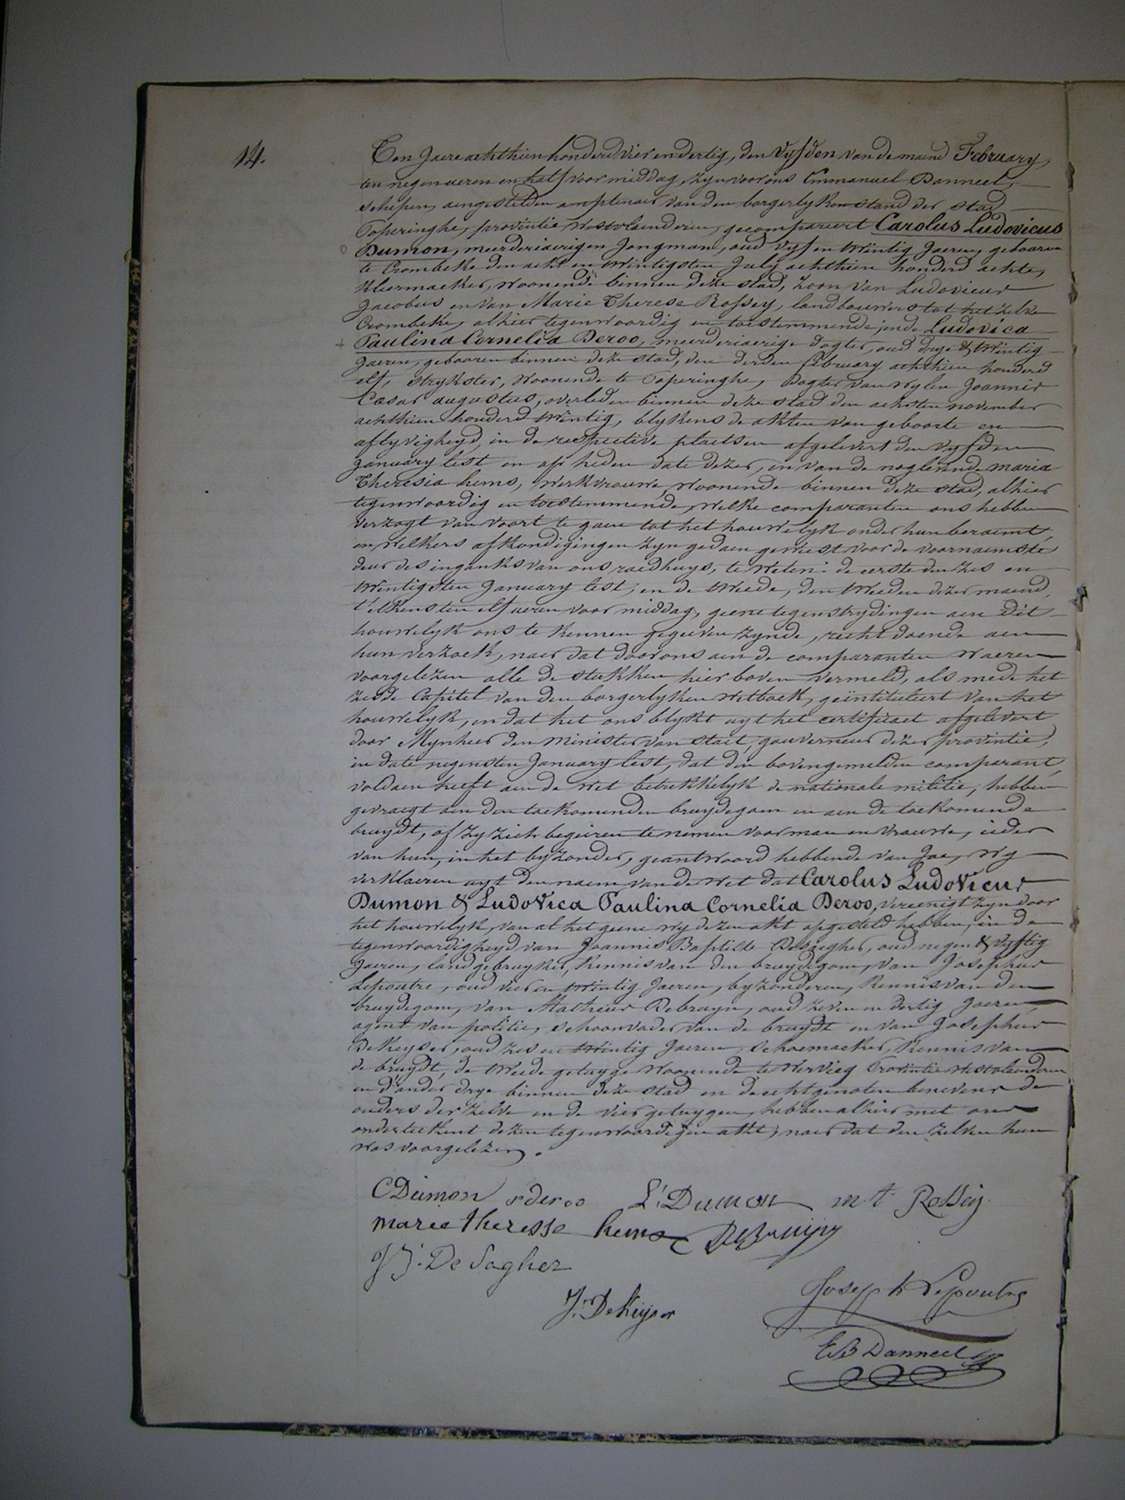 14.
Ten Jaere achthien honderd vier en dertig, den vyfden van de maend February,
ten negen ueren en half voor middag, zyn voor ons Emmanuel Danneel,
schepen, aengestelden amptenaer van den borgerlyken stand der stad
Poperinghe, provintie Westvlaenderen, gecompareert Carolus Ludovicus
Dumon, meerderjaerigen Jongman, oud vyf en twintig Jaeren, gebooren
te Crombeke den acht en twintigsten July achthien honderd achte,
kleermaeker, woonende binnen deze stad, zoon van Ludovicus
Jacobus en van Marie Therese Rossey, landbouwers tot het zelve
Crombeke, alhier tegenwoordig en toestemmende; ende Ludovica
Paulina Cornelia Deroo, meerderjaerige dogter, oud drye & twintig
Jaeren, gebooren binnen deze stad, den derden february achthien honderd
elf, strykster, woonende te Poperinghe, dogter van wylen Joannes
Cesar augustus, overleden binnen deze stad den achsten november
achthien honderd twintig, blykens de akten van geboorte en
aflyvigheyd, in de respective plaetsen afgelevert den vyfden
January lest en op heden date dezer, en van de nogtevende maria
Theresia hems, werkvrouwe woonende binnen deze stad, alhier
tegenwoordig en toestemmende, welke comparanten ons hebben
verzogt van voort te gaen tot het houwelyk onder hun beraemt,
en welkers afkondigingen zyn gedaen geweest voor de voornaemste
deur des ingangs van ons raedhuys, te weten: de eerste den zes en
twintigsten January lest, en de tweede, den tweeden dezer maend,
t'elkensten elf ueren voor middag, geene tegenstrydingen aen dit
houwelyk ons te kennen gegeven zynde, recht doende aen
hun verzoek, naer dat door ons aen de comparanten waeren
voorgelezen alle de stukken hier boven vermeld, als mede het
zesde Capitel van den borgerlyken wetboek, geintituleert van het
houwelyk, en dat het ons blykt uyt het certificaet afgelevert
door Mynheer den minister van staet, gouverneur dezer provintie,
in date negensten January lest, dat den bovengemelden comparant,
voldaen heeft aen de wet betrekkelyk de nationale militie, hebben
gevraegt aen den toekomenden bruydegom en aen de toekomende
bruydt, of zy zich begeiren te nemen voor man en vrouwe, ieder
van hun, in het byzonder, geantwoord hebbende van Jae, wy
verklaeren uyt den naem van de wet dat Carolus Ludovicus
Dumon & Ludovica Paulina Cornelia Deroo, vereenigt zyn door
het houwelyk, van al het geene wy dezen akt opgesteld hebben, in de
tegenwoordigheyd van Joannis Baptiste Desagher, oud negen & vyftig
Jaeren, landgebruyker, kennis van den bruydegom, van Josephus
Lepoutre, oud vier en twintig Jaeren, byzonderen, kennis van den
bruydegom, van Matheus Debruyn, oud zeven en dertig Jaeren,
agent van politie, schoonvader van de bruydt en van Josephus
Dekeyser, oud zes en twintig Jaeren, schoemaeker, kennis van
de bruydt, de tweede getuyge woonende te Wervicq Provintie Westvlaenderen
en d'ander drye binnen deze stad en de echtgenoten benevens de
ouders der zelve en de vier getuygen, hebben alhier met ons
onderteekent dezen tegenwoordigen akt; naer dat den zelven hun
was voorgelezen.
C Dumon r deroo L: Dumon m t Rossey
marie theresse hems Debruijn
J B: De Sagher
Joseph Lepoutre
J: De Keijser
E B Danneel